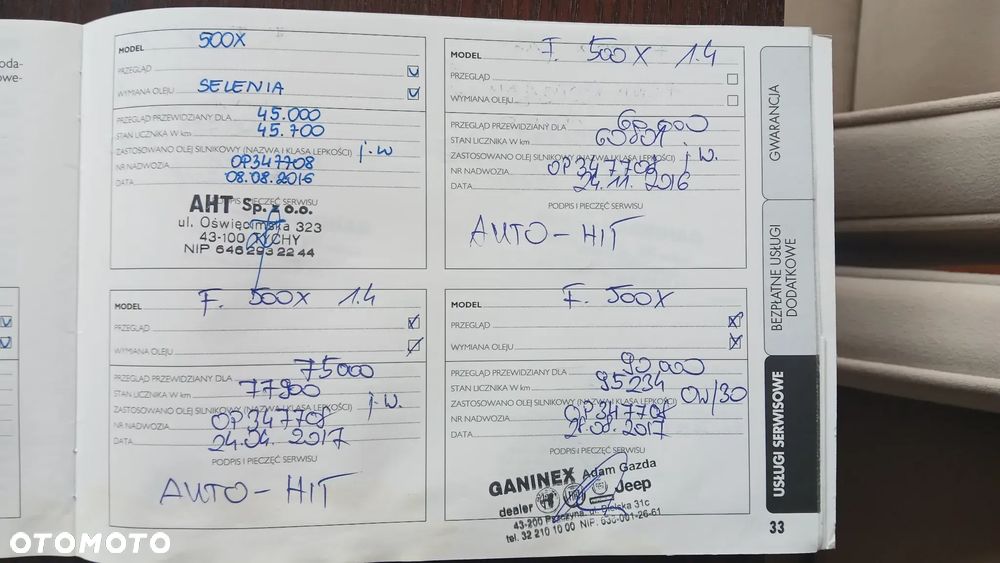 oda-
owe-
MODEL 500X
PRZEGLĄD
WYMIANA OLEJU SELENIA
PRZEGLĄD PRZEWIDZIANY DLA 45.000
STAN LICZNIKA W km 45.700
ZASTOSOWANO OLEJ SILNIKOWY (NAZWA I KLASA LEPKOŚCI) j.w
NR NADWOZIA OP347708
DATA 08.08.2016
PODPIS I PIECZĘĆ SERWISU
AHT Sp. z o.o.
ul. Oświęcimska 323
43-100 TYCHY
NIP 646 293 22 44
MODEL F. 500X 1.4
PRZEGLĄD
WYMIANA OLEJU
PRZEGLĄD PRZEWIDZIANY DLA 60.000
STAN LICZNIKA W km
ZASTOSOWANO OLEJ SILNIKOWY (NAZWA I KLASA LEPKOŚCI) j.w.
NR NADWOZIA OP347708
DATA 24.11.2016
PODPIS I PIECZĘĆ SERWISU
AUTO-HIT
MODEL F. 500X 1.4
PRZEGLĄD
WYMIANA OLEJU
PRZEGLĄD PRZEWIDZIANY DLA 75000
STAN LICZNIKA W km 77900
ZASTOSOWANO OLEJ SILNIKOWY (NAZWA I KLASA LEPKOŚCI) j.w.
NR NADWOZIA OP347708
DATA 24.04.2017
PODPIS I PIECZĘĆ SERWISU
AUTO-HIT
MODEL F. 500X
PRZEGLĄD
WYMIANA OLEJU
PRZEGLĄD PRZEWIDZIANY DLA 90.000
STAN LICZNIKA W km 95234
ZASTOSOWANO OLEJ SILNIKOWY (NAZWA I KLASA LEPKOŚCI) 0W/30
NR NADWOZIA OP347708
DATA 28.08.2017
PODPIS I PIECZĘĆ SERWISU
GANINEX Adam Gazda
dealer Jeep
43-200 Pszczyna, ul. Bielska 31c
tel. 32 210 10 00 NIP: 638-001-26-61
GWARANCJA
BEZPŁATNE USŁUGI
DODATKOWE
USŁUGI SERWISOWE
33
OTOMOTO